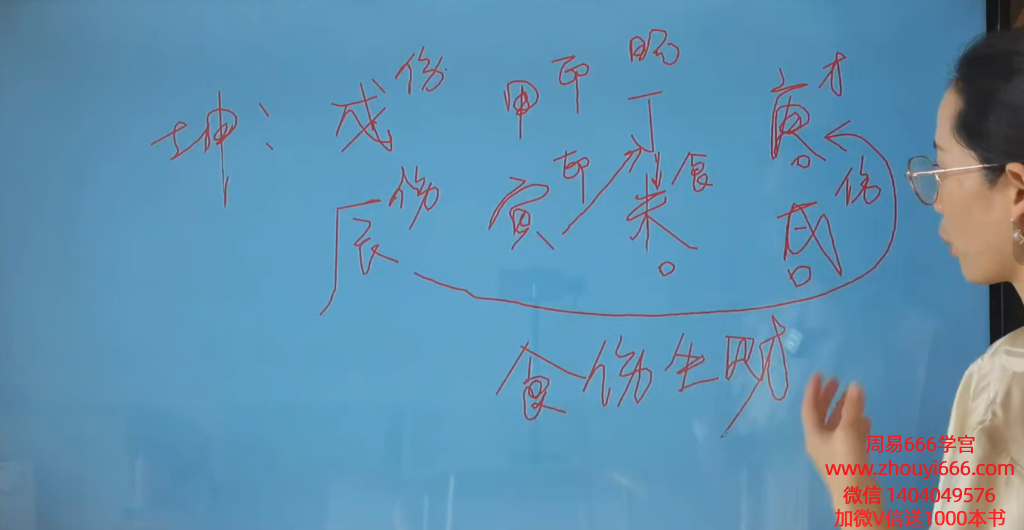 坤：戊伤 甲印 丁阳 庚才
辰伤 寅印 未食 戌伤
食伤生财
周易666学宫
www.zhouyi666.com
微信 1404049576
加微V信送1000本书